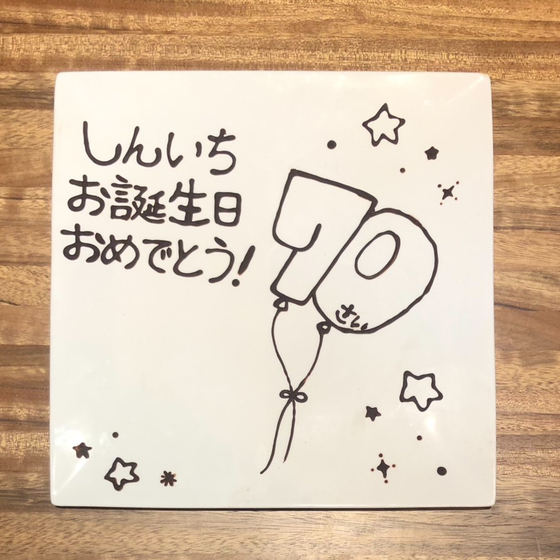 しんいち
お誕生日
おめでとう!
70
さい